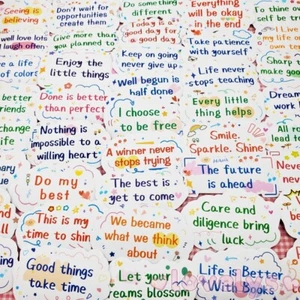 Seeing is
believing
Don't wait for
opportunities
create them
Do something
different
Everything
will be okay
in the end
well love lots
laugh often
Give more than
you planned to
Today is a
good day for a
good day
Take patience
with yourself
a life
of colors
Enjoy the
little things
Keep on going
never give up
Life never
stops teaching
Done is better
than perfect
Well begun is
half done
Every little
thing helps
change
life
Nothing is
impossible to a
willing heart
I choose
to be free
Smile.
Sparkle. Shine
Do my
best
A winner never
stops trying
The future
is ahead
This is my
time to shin
The best is
yet to come
Care and
diligence bring
luck
Good things
take time
We became
what we think
about
Let your
reams blossom
Life is Better
With Books